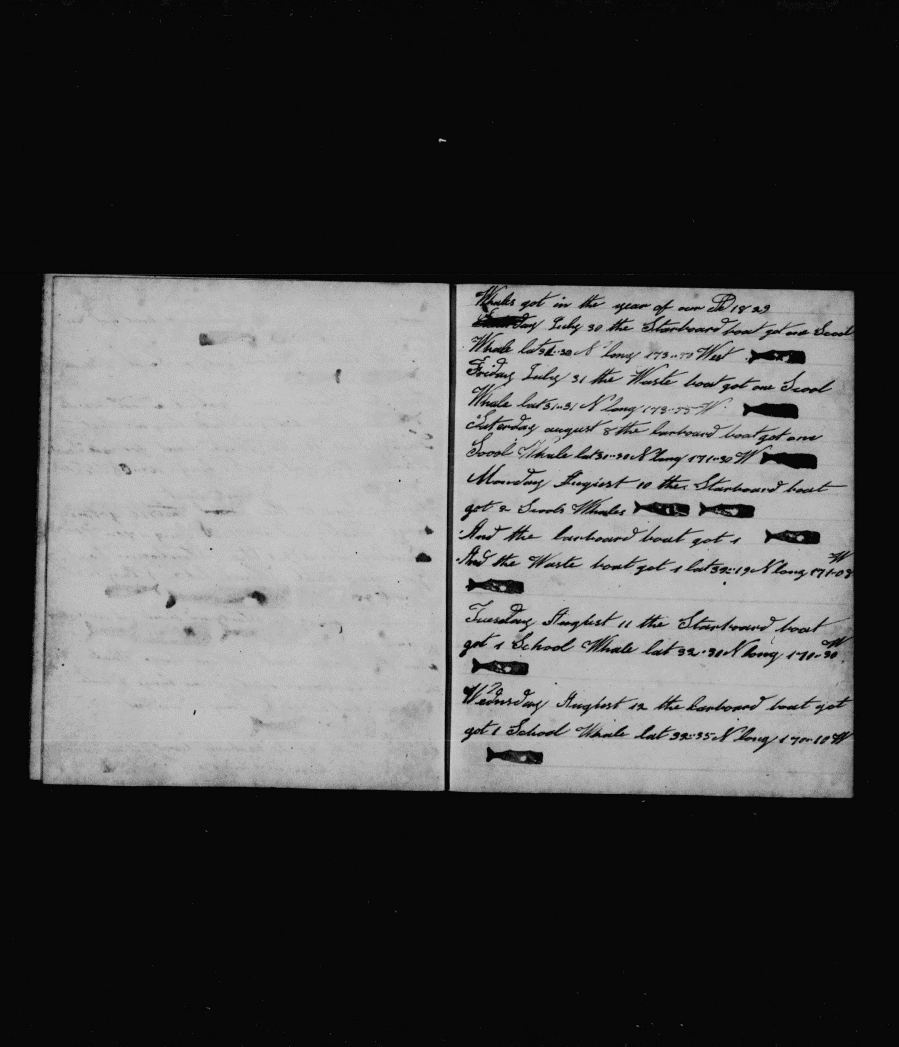 Whales got in the year of our 1829
day July 30 the Starboard boat got one Scool
Whale lat 32-30 N long 173 West
Friday July 31 the Waste boat got one Scool
Whale lat 31-31 N long 173-55 W
Saterday august 8 the larboard boat got one
Scool Whale lat 30-30 N long 171-30 W
Monday Auguest 10 the Starboard boat
got 2 Scools Whales
And the larboard boat got 1
And the Waste boat got 1 lat 32-19 N long 171-03 W
Tuesday Auguest 11 the Starboard boat
got 1 School Whale lat 32-30 N long 170-30 W
Wednsday Auguest 12 the larboard boat got
got 1 School Whale lat 32-35 N long 170-10 W